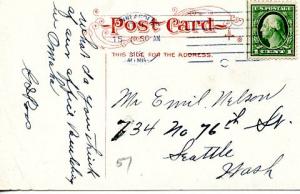 Post Card
THIS SIDE FOR THE ADDRESS.
U.S. POSTAGE
1 CENT 1
What do you think
of our office building
in Omaha
Mr Emil Nelson
734 No 76th St.
Seattle
Wash
57